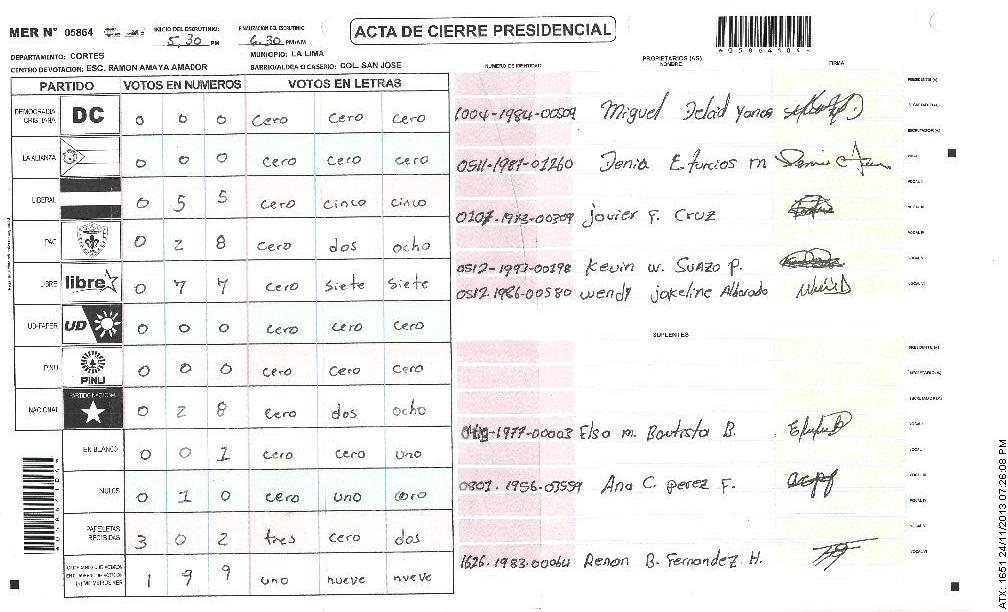 MER N° 05864 INICIO DEL ESCRUTINIO: 5,30 PM FINALIZACION DEL ESCRUTINIO: 6.30 PM/AM
ACTA DE CIERRE PRESIDENCIAL
DEPARTAMENTO: CORTES MUNICIPIO: LA LIMA
CENTRO DE VOTACION: ESC. RAMON AMAYA AMADOR BARRIO/ALDEA O CASERIO: COL. SAN JOSE
PARTIDO VOTOS EN NUMEROS VOTOS EN LETRAS
DEMOCRACIA CRISTIANA DC 0 0 0 cero cero cero
LA ALIANZA 0 0 0 cero cero cero
LIBERAL 0 5 5 cero cinco cinco
PAC 0 2 8 cero dos ocho
LIBRE libre 0 7 7 cero siete siete
UD-FAPER UD 0 0 0 cero cero cero
PINU PINU 0 0 0 cero cero cero
NACIONAL PARTIDO NACIONAL 0 2 8 cero dos ocho
EN BLANCO 0 0 1 cero cero uno
NULOS 0 1 0 cero uno cero
PAPELETAS RECIBIDAS 3 0 2 tres cero dos
1 9 9 uno nueve nueve
NUMERO DE IDENTIDAD PROPIETARIOS (AS) NOMBRE FIRMA
1004-1984-00509 Miguel Yanos
0511-1987-01260 Denia Efurcios m
0107-1973-00309 Javier F. Cruz
0512-1993-00198 Kevin W. Suazo P.
0512-1986-00580 Wendy jakeline Alvarado
SUPLENTES
-1977-00003 Elsa m. Bautista B.
0801-1956-03559 Ana C. perez F.
1626-1983-00064 Renan B. Fernandez H.
ATX: 1651 24/11/2013 07:26:08 PM